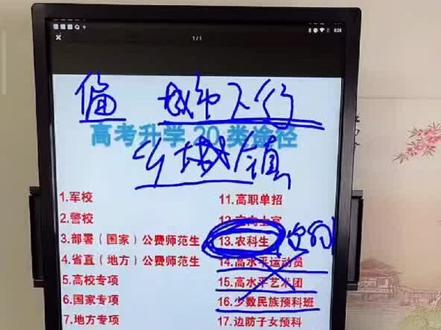 1/1
偏 城市不行
高考升学20类途径
乡城镇
1.军校
2.警校
3.部署（国家）公费师范生
4.省直（地方）公费师范生
5.高校专项
6.国家专项
7.地方专项
11.高职单招
13.农科生
14.高水平运动员
15.高水平艺术团
16.少数民族预科班
17.边防子女预科